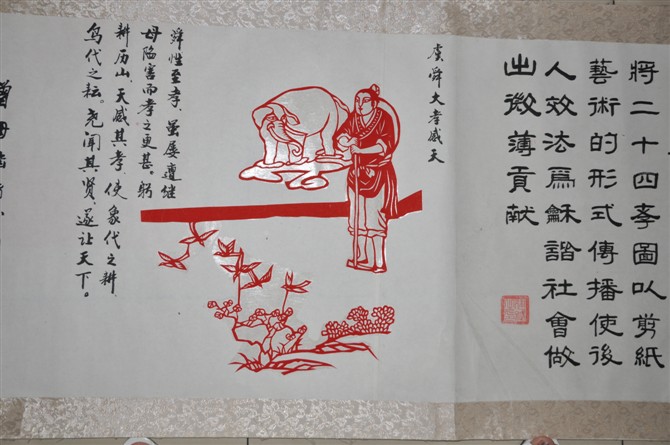 將二十四孝圖以剪紙
藝術的形式傳播使後
人效法爲龢諧社會做
出微薄貢献
虞舜大孝感天
舜性至孝,虽屡遭继
母陷害而孝之更甚。躬
耕历山,天感其孝,使象代之耕,
鸟代之耘。尧闻其贤,遂让天下。